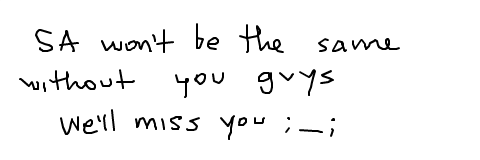 SA won't be the same
without you guys
We'll miss you ;_;